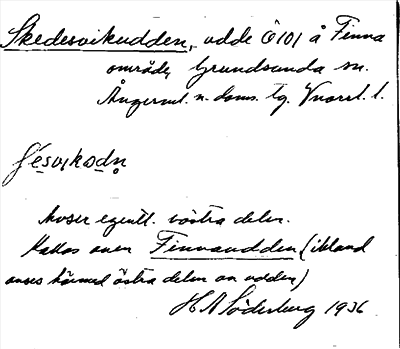 Skedesvikudden, udde Ö 101 å Finna
område, Grundsunda sn.
Ångerml. n. doms. tg. Vnorrl. l.
Avser egentl. västra delen.
Kallas även Finnaudden (ibland
anses härmed östra delen av udden)
H A Söderberg 1936